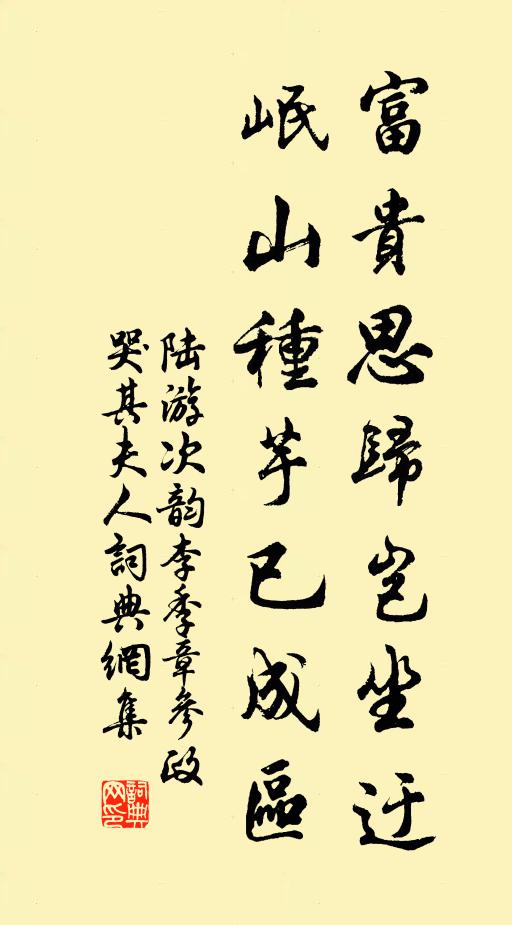 富貴思歸豈坐迂
岷山種芋已成區
陆游次韵李季章參政
哭其夫人詞典網集
詞典
网印